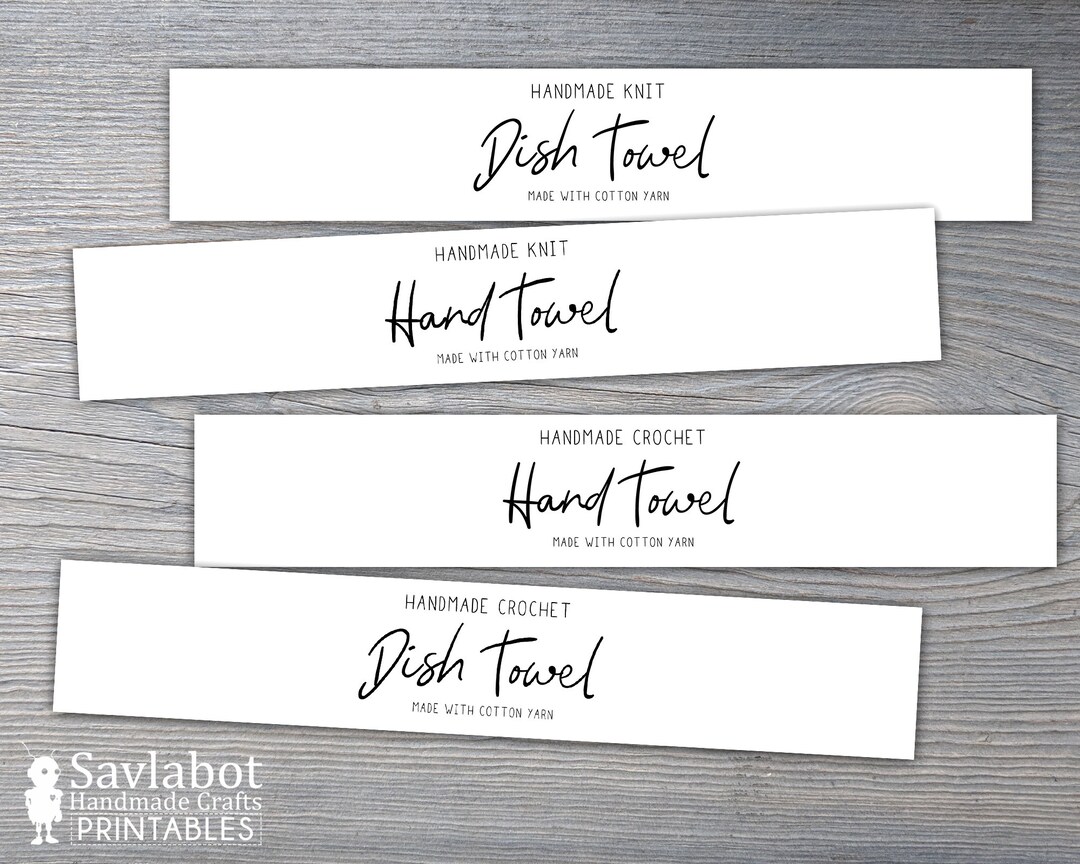 HANDMADE KNIT
Dish Towel
MADE WITH COTTON YARN
HANDMADE KNIT
Hand Towel
MADE WITH COTTON YARN
HANDMADE CROCHET
Hand Towel
MADE WITH COTTON YARN
HANDMADE CROCHET
Dish Towel
MADE WITH COTTON YARN
Savlabot
Handmade Crafts
PRINTABLES